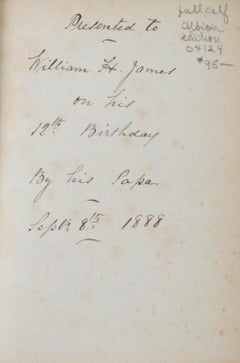 Presented to
William H. James
on his
12th Birthday
By his Papa.
Septr 8th 1888
full calf
Albion
edition
04124
$95—